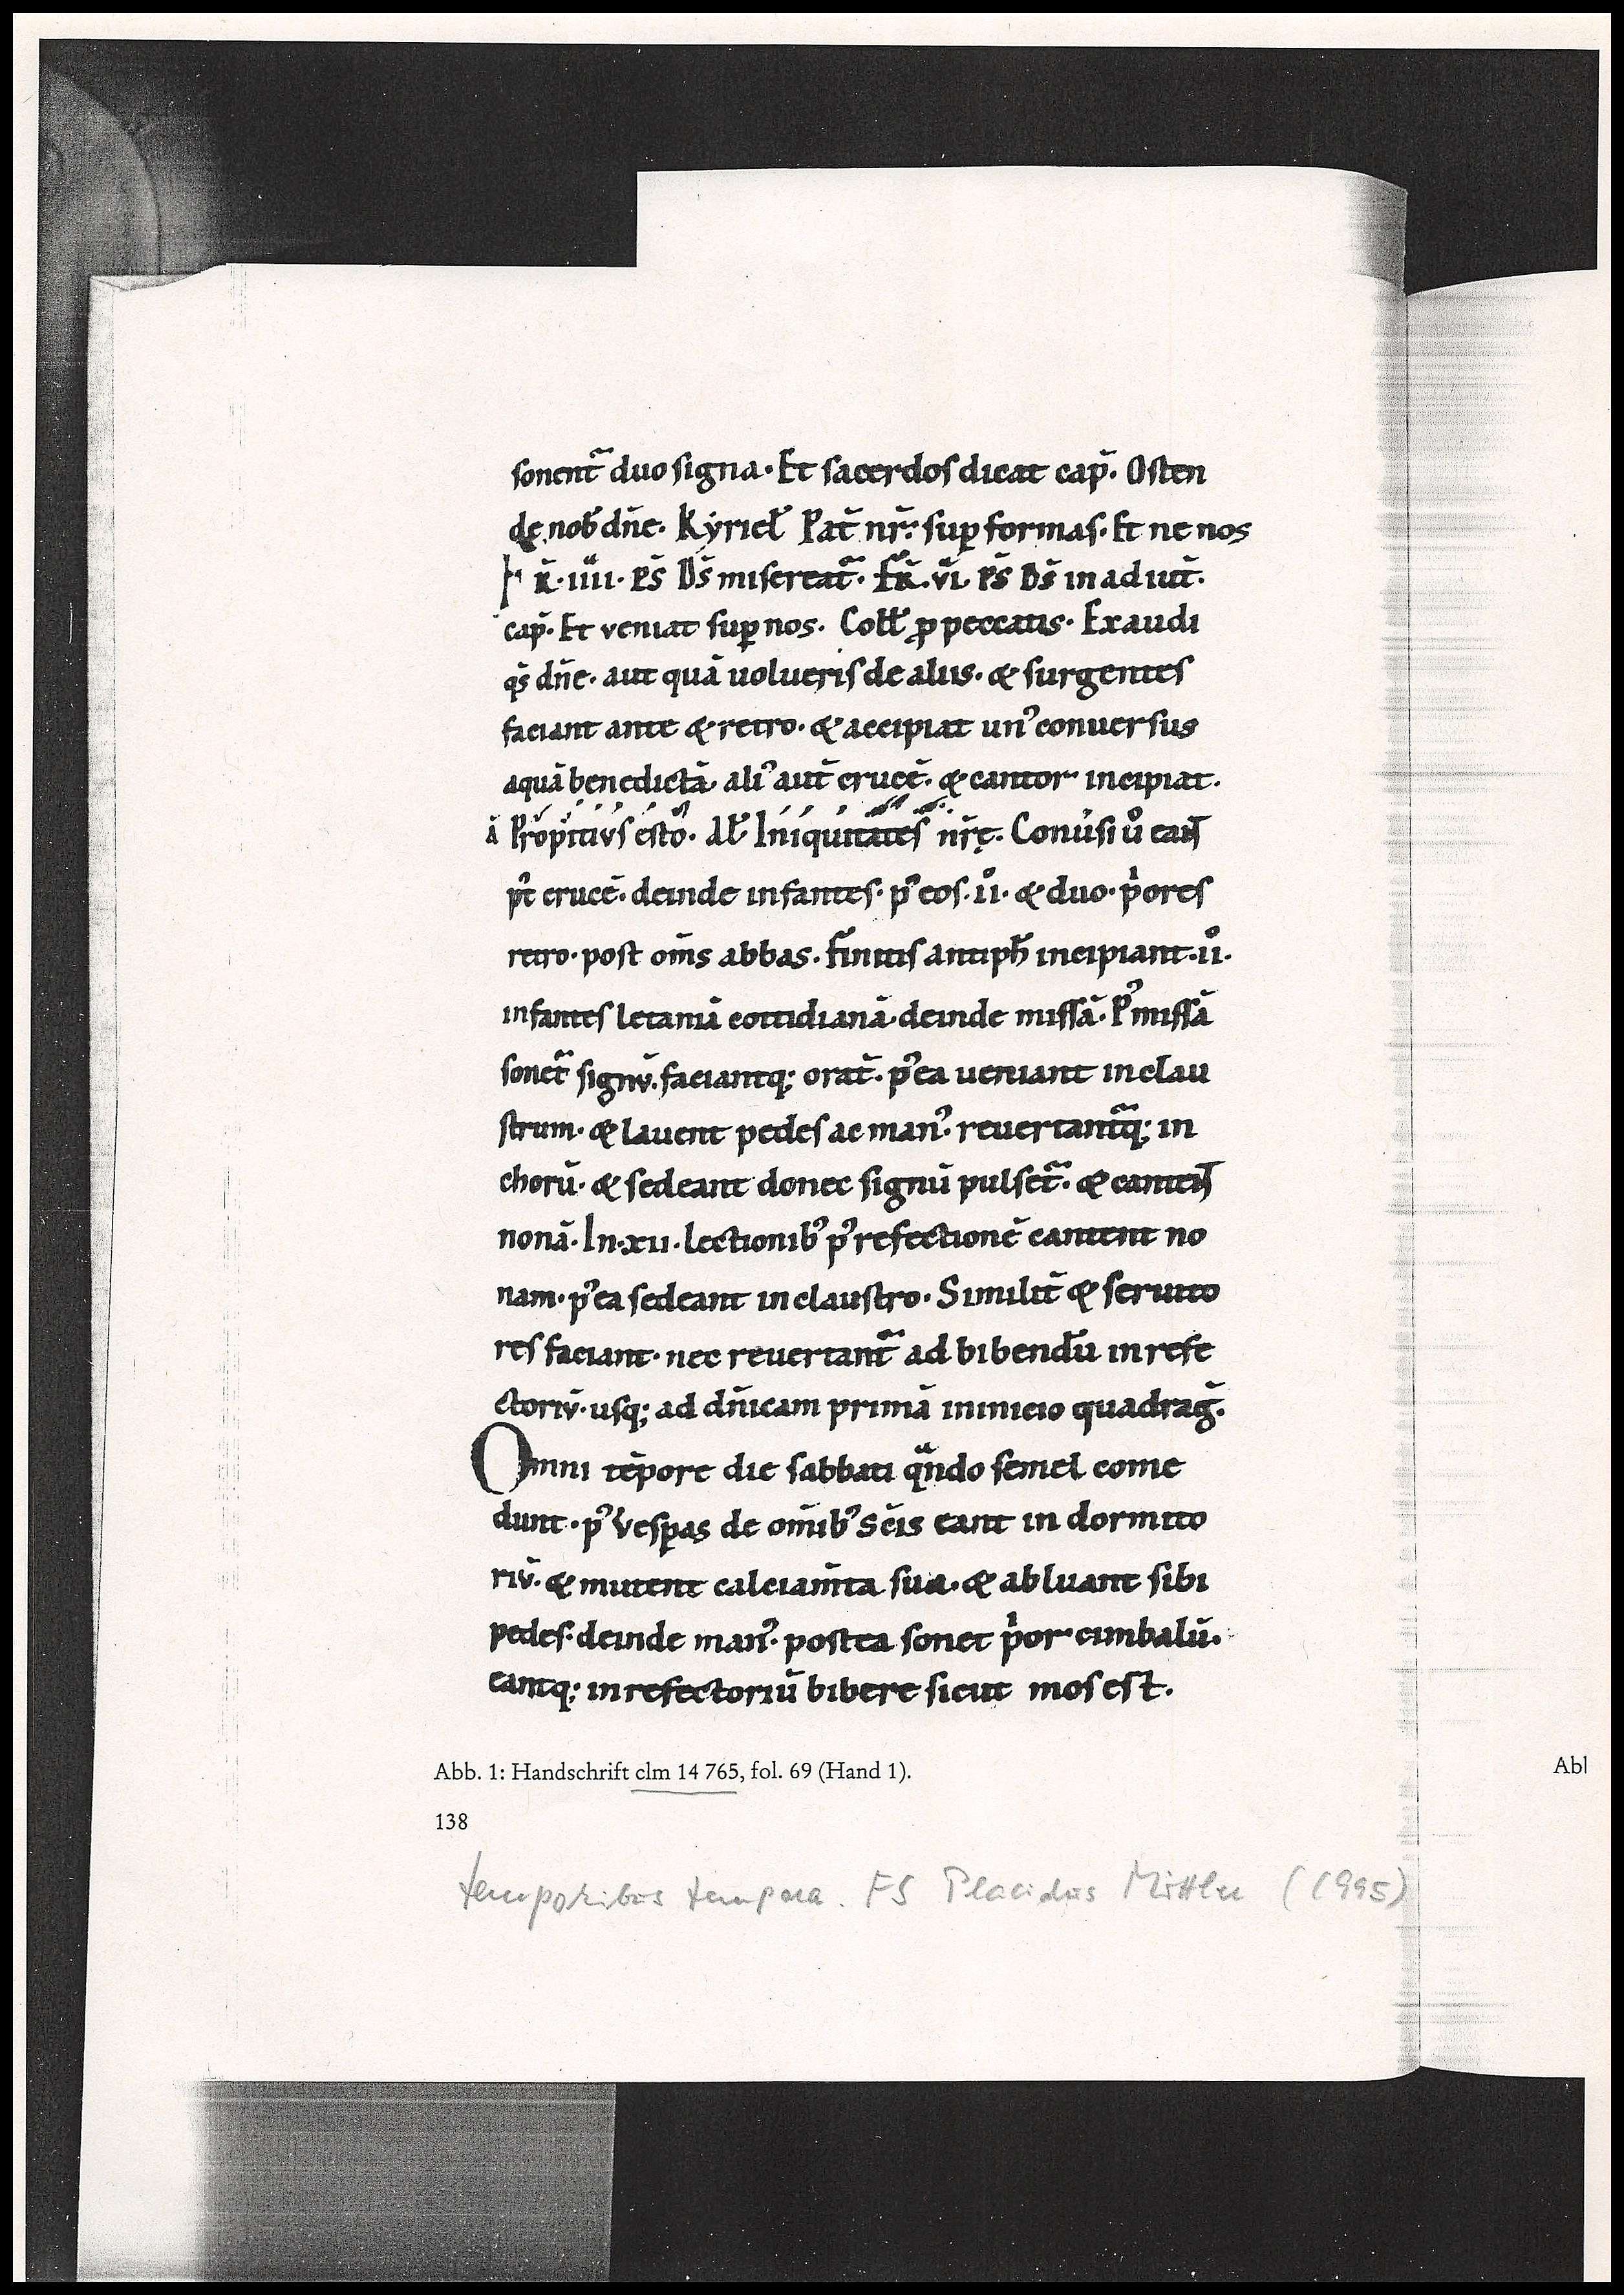 sonent᷑ duo signa· Et sacerdos dicat cap̄. Osten
de nob̄ dn̄e· Kyriel̄ Pat̄ nr̄: sup formas· Et ne nos
k̄· iiii· Ps̄ Ds̄ misereat᷑· vi· ps̄ Ds̄ in adiut̄·
cap̄· Et veniat sup nos· Coll̄ p peccatis· Exaudi
qs̄ dn̄e· aut quā uolueris de aliis· & surgentes
faciant ante & retro· & accipiat un᾽ conuersus
aquā benedictā· ali᾽ aut̄ crucē· & cantor incipiat·
ā Propitius esto· Al̄ Iniquitates nr̄ę· Conūsi ū
crucē· deinde infantes· p᾽ eos· ii· & duo· p̍ores
retro· post om̄s abbas· finitis antiph̄ incipiant·ii·
infantes letaniā cottidianā· deinde missā· P᾽ missā
sonet᷑ signū· faciantq; orat̄· p᾽ea ueniant in clau
strum· & lauent pedes ac man᾽· reuertant᷑q; in
chorū· & sedeant donec signū pulset᷑· &
nonā· In·xii·lectionib᾽ p᾽ refectionē cantent no
nam· p᾽ea sedeant in claustro· Similit̄ & seruito
res faciant· nec reuertant᷑ ad bibendū in refe
ctoriū· usq; ad dn̄icam primā in inicio quadraḡ·
Omni tēpore die sabbati qͣndo semel come
dunt· p᾽ Vespas de om̄ib᾽ Sc̄is eant in dormito
riū· & mutent calciam̄ta sua· & abluant sibi
pedes· deinde man᾽· postea sonet p̍or cimbalū·
eantq; in refectoriū bibere sicut mos est·
Abb. 1: Handschrift clm 14 765, fol. 69 (Hand 1).
Abl
138
temporibus tempora. FS Placidus Mittler (1995)